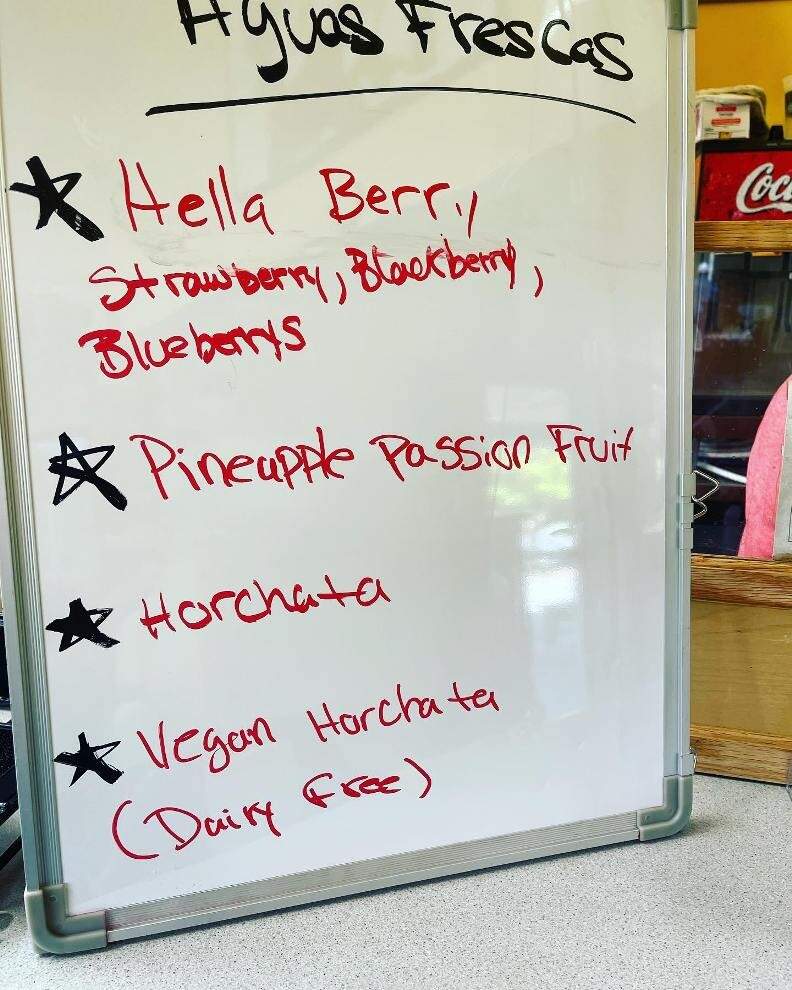 Aguas Frescas
Hella Berry
Strawberry, Blackberry,
Blueberrys
Pineapple Passion Fruit
Horchata
Vegan Horchata
(Dairy Free)
Coc